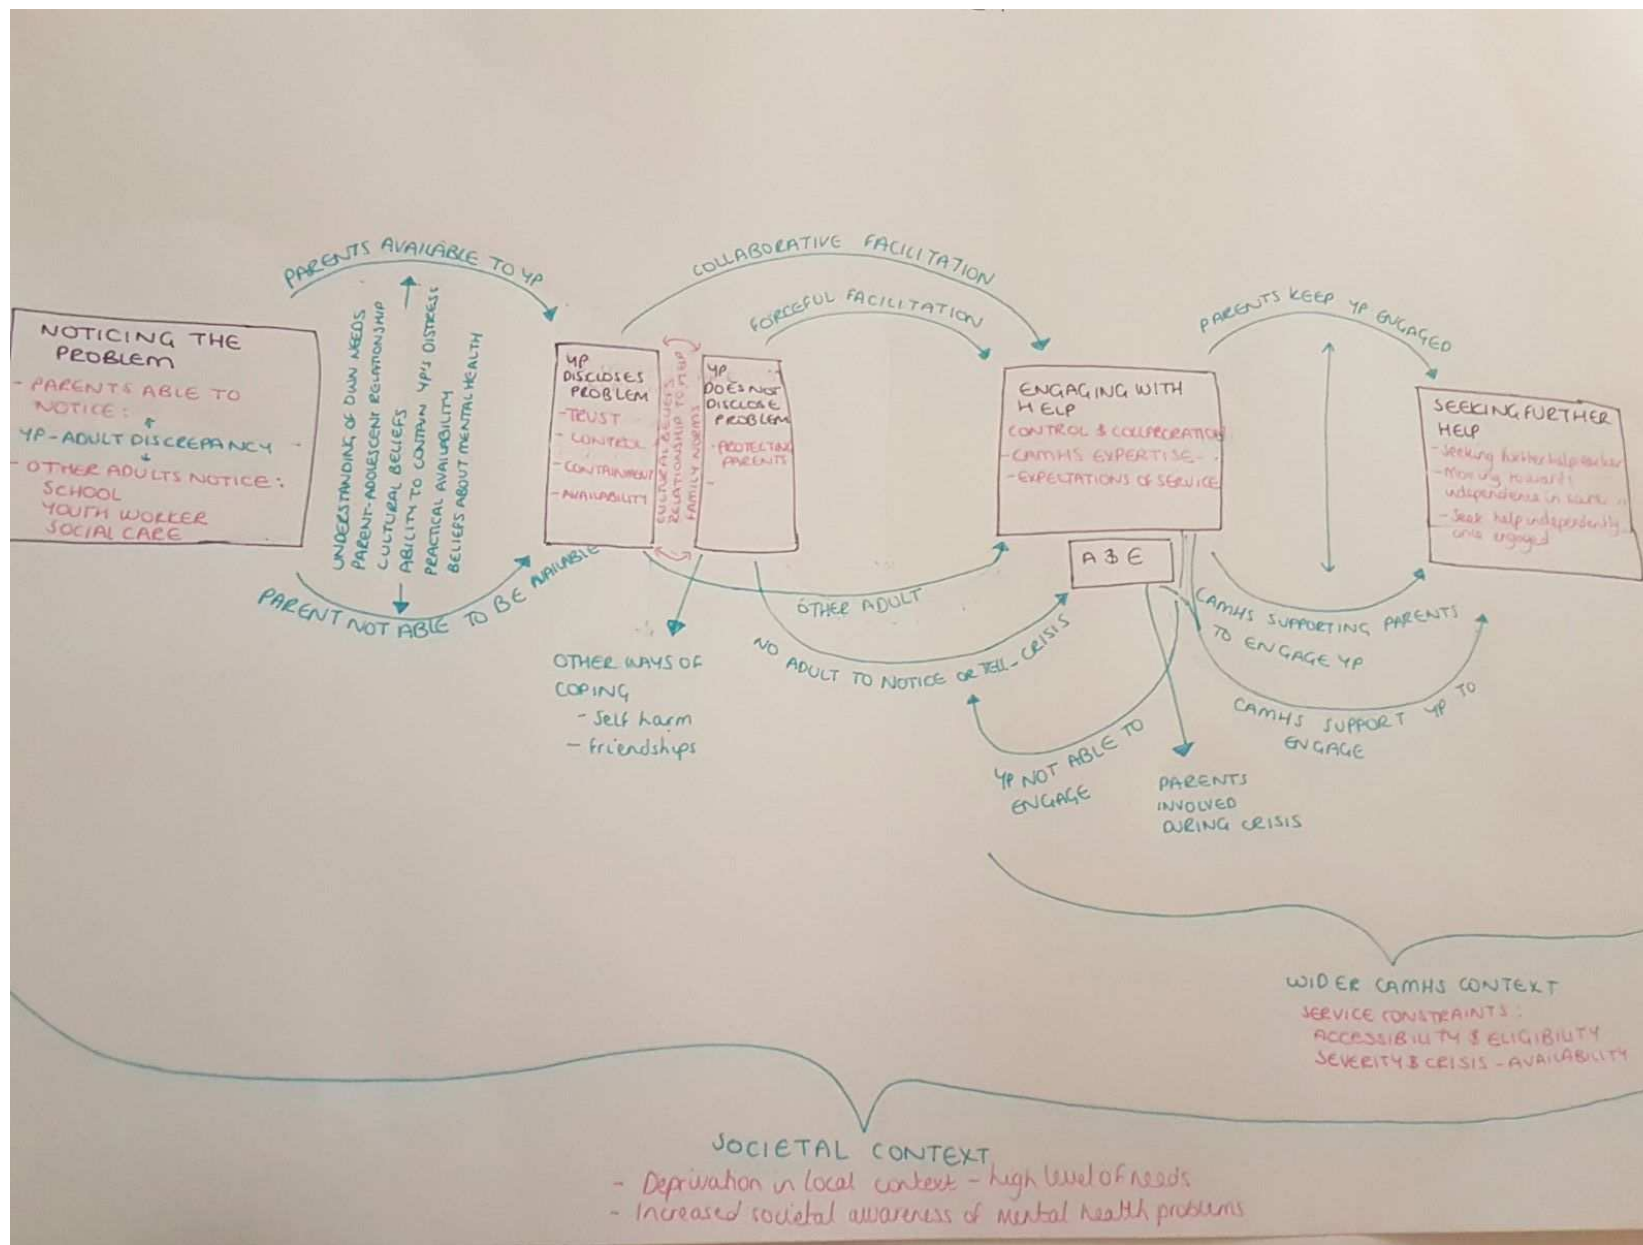 PARENTS AVAILABLE TO YP
NOTICING THE
PROBLEM
- PARENTS ABLE TO
NOTICE:
YP-ADULT DISCREPANCY -
- OTHER ADULTS NOTICE:
SCHOOL
YOUTH WORKER
SOCIAL CARE
UNDERSTANDING OF OWN NEEDS
PARENT-ADOLESCENT RELATIONSHIP
CULTURAL BELIEFS
ABILITY TO CONTAIN YP'S DISTRESS
PRACTICAL AVAILABILITY
BELIEFS ABOUT MENTAL HEALTH
PARENT NOT ABLE TO BE AVAILABLE
YP
DISCLOSES
PROBLEM
-TRUST
- CONTROL
- CONTAINMENT
- AVAILABILITY
CULTURAL BELIEFS
RELATIONSHIP TO HELP
FAMILY NORMS
YP
DOES NOT
DISCLOSE
PROBLEM
- PROTECTING
PARENTS
-
COLLABORATIVE FACILITATION
FORCEFUL FACILITATION
OTHER ADULT
NO ADULT TO NOTICE OR TELL - CRISIS
OTHER WAYS OF
COPING
- Self harm
- friendships
ENGAGING WITH
HELP
CONTROL & COLLABORATION
- CAMHS EXPERTISE -
- EXPECTATIONS OF SERVICE
A & E
YP NOT ABLE TO
ENGAGE
PARENTS
INVOLVED
DURING CRISIS
PARENTS KEEP YP ENGAGED
CAMHS SUPPORTING PARENTS
TO ENGAGE YP
CAMHS SUPPORT YP TO
ENGAGE
SEEKING FURTHER
HELP
- Seeking further help
- Moving towards
independence in
- Seek help independently
once engaged
WIDER CAMHS CONTEXT
SERVICE CONSTRAINTS:
ACCESSIBILITY & ELIGIBILITY
SEVERITY & CRISIS - AVAILABILITY
SOCIETAL CONTEXT
- Deprivation in local context - high level of needs
- Increased societal awareness of mental health problems